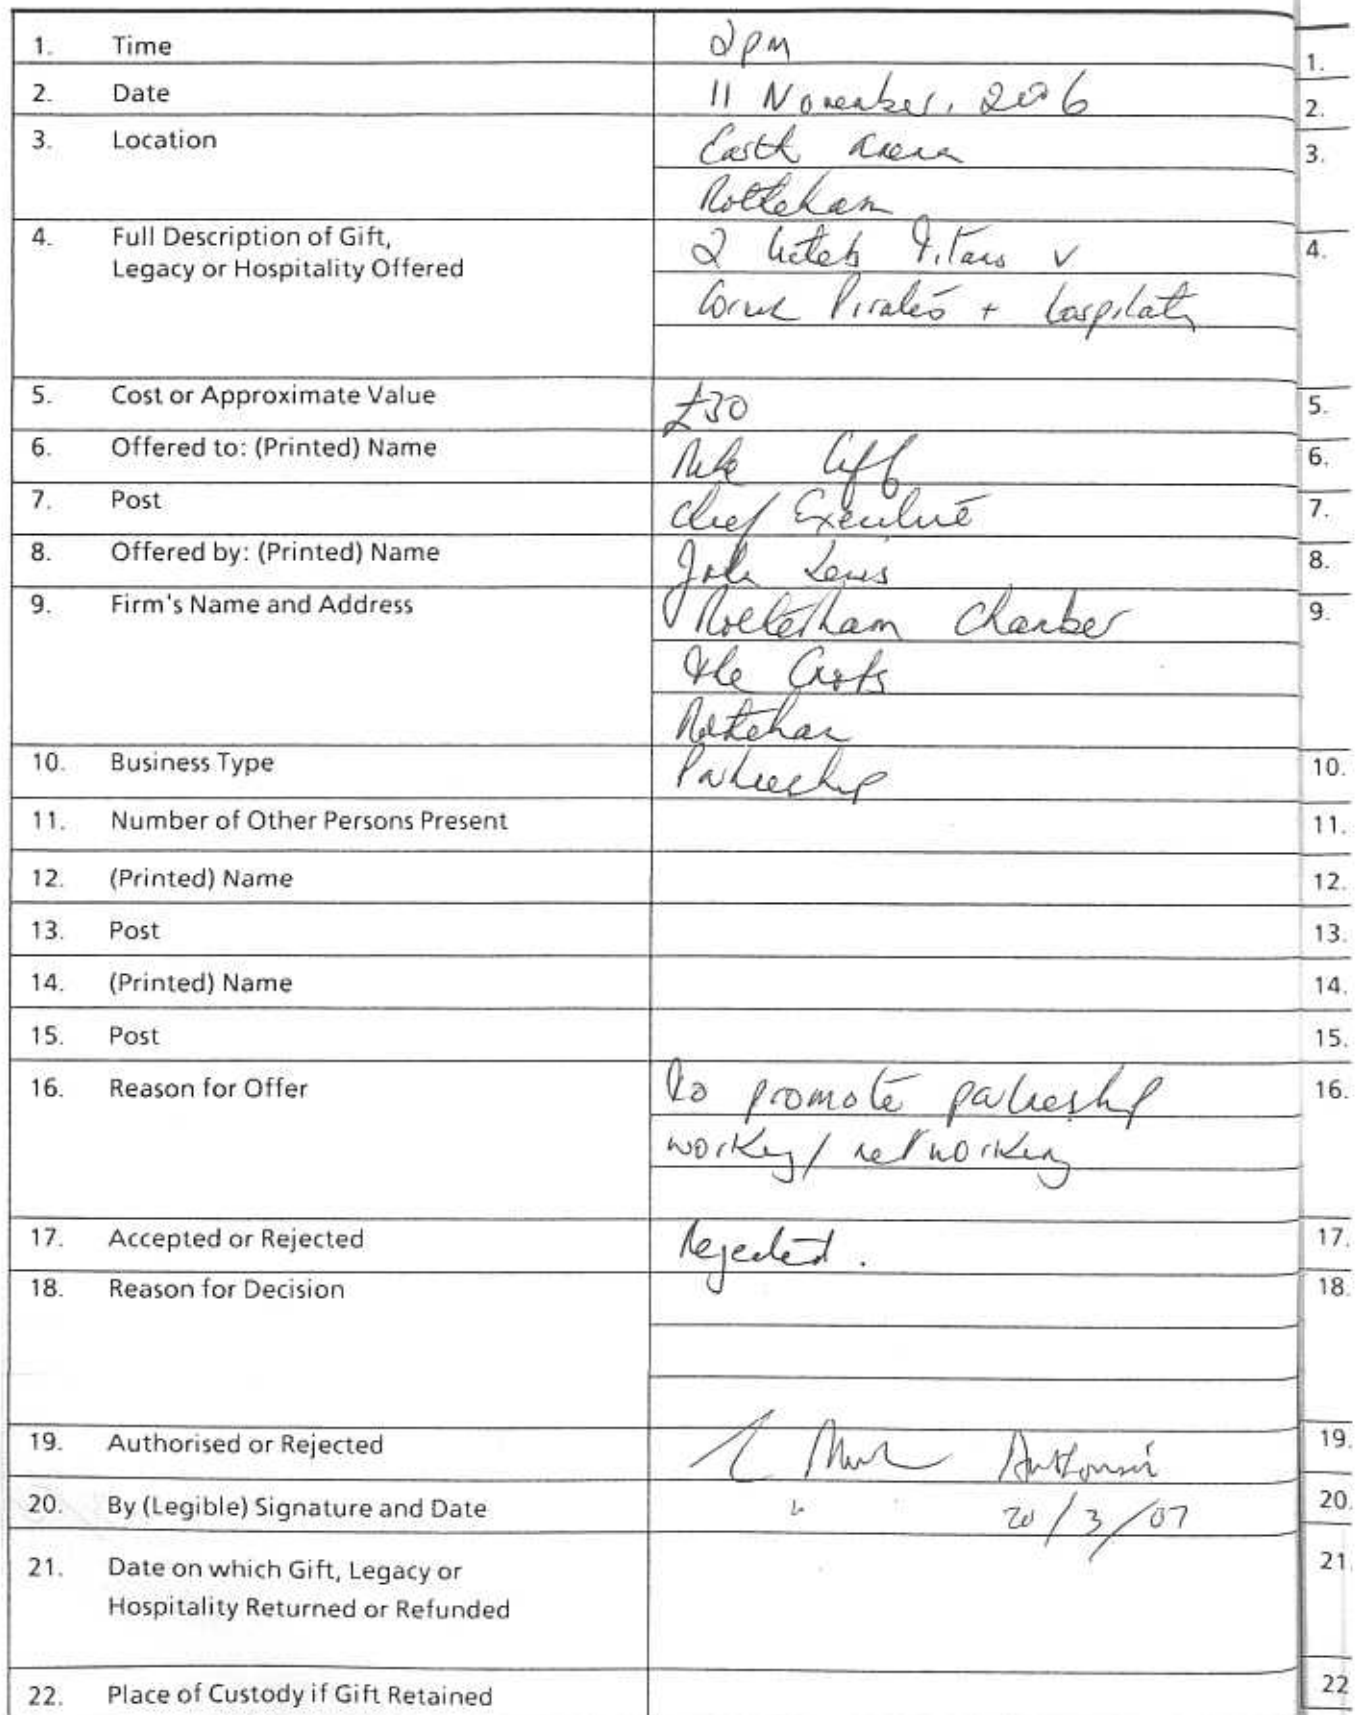 1. Time 2pm
2. Date 11 November, 2006
3. Location Earth Arena
Rotherham
4. Full Description of Gift, 2 tickets Titans v
Legacy or Hospitality Offered
Pirates + hospitality
5. Cost or Approximate Value £30
6. Offered to: (Printed) Name Mike Cuff
7. Post Chief Executive
8. Offered by: (Printed) Name John Lewis
9. Firm's Name and Address Rotherham Chamber
The Crofts
Rotherham
10. Business Type Partnership
11. Number of Other Persons Present
12. (Printed) Name
13. Post
14. (Printed) Name
15. Post
16. Reason for Offer To promote partnership
working/networking
17. Accepted or Rejected Rejected.
18. Reason for Decision
19. Authorised or Rejected
20. By (Legible) Signature and Date " 20/3/07
21. Date on which Gift, Legacy or
Hospitality Returned or Refunded
22. Place of Custody if Gift Retained
1.
2.
3.
4.
5.
6.
7.
8.
9.
10.
11.
12.
13.
14.
15.
16.
17.
18.
19.
20.
21.
22